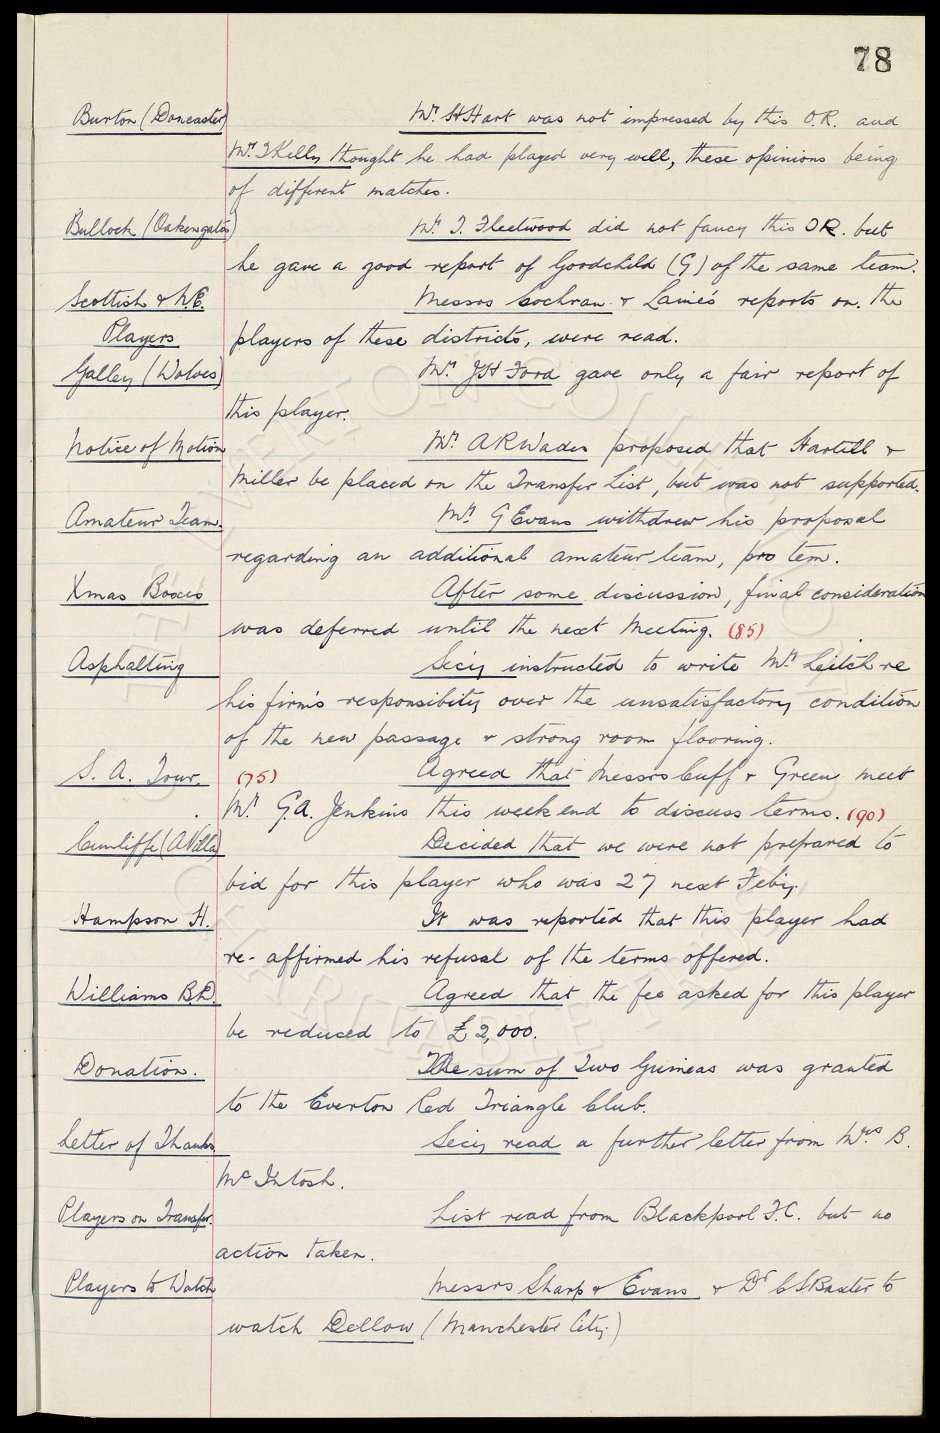 78
Burton (Doncaster) Mr. H Hart was not impressed by this O.R. and
Mr. T Kelly thought he had played very well, these opinions being
of different matches.
Bullock (Oakengates) Mr. T. Fleetwood did not fancy this OR. but
he gave a good report of Goodchild (G) of the same team.
Scottish & N.E. Messrs Cochran & Laine's reports on the
Players players of these districts, were read.
Galley (Wolves) Mr. JH Ford gave only a fair report of
this player.
Notice of Motion Mr. AR Wades proposed that Hartill &
Miller be placed on the Transfer List, but was not supported.
Amateur Team. Mr. G Evans withdrew his proposal
regarding an additional amateur team, pro tem.
Xmas Boxes After some discussion, final consideration
was deferred until the next Meeting. (85)
Asphalting Secy instructed to write Mr. Leitch re
his firm's responsibity over the unsatisfactory condition
of the new passage & strong room flooring.
S. A. Tour. (75) Agreed that Messrs Cuff & Green meet
Mr. G.A. Jenkins this week end to discuss terms. (90)
Cunliffe (A Villa) Decided that we were not prepared to
bid for this player who was 27 next Feby.
Hampson H. It was reported that this player had
re-affirmed his refusal of the terms offered.
Williams B.D. Agreed that the fee asked for this player
be reduced to £2,000.
Donation. The sum of Two Guineas was granted
to the Everton Red Triangle Club.
Letter of Thanks Secy read a further letter from Mrs B.
McIntosh.
Players on Transfer. List read from Blackpool F.C. but no
action taken.
Players to Watch Messrs Sharp & Evans & Dr CS Baxter to
watch Dellow (Manchester City)